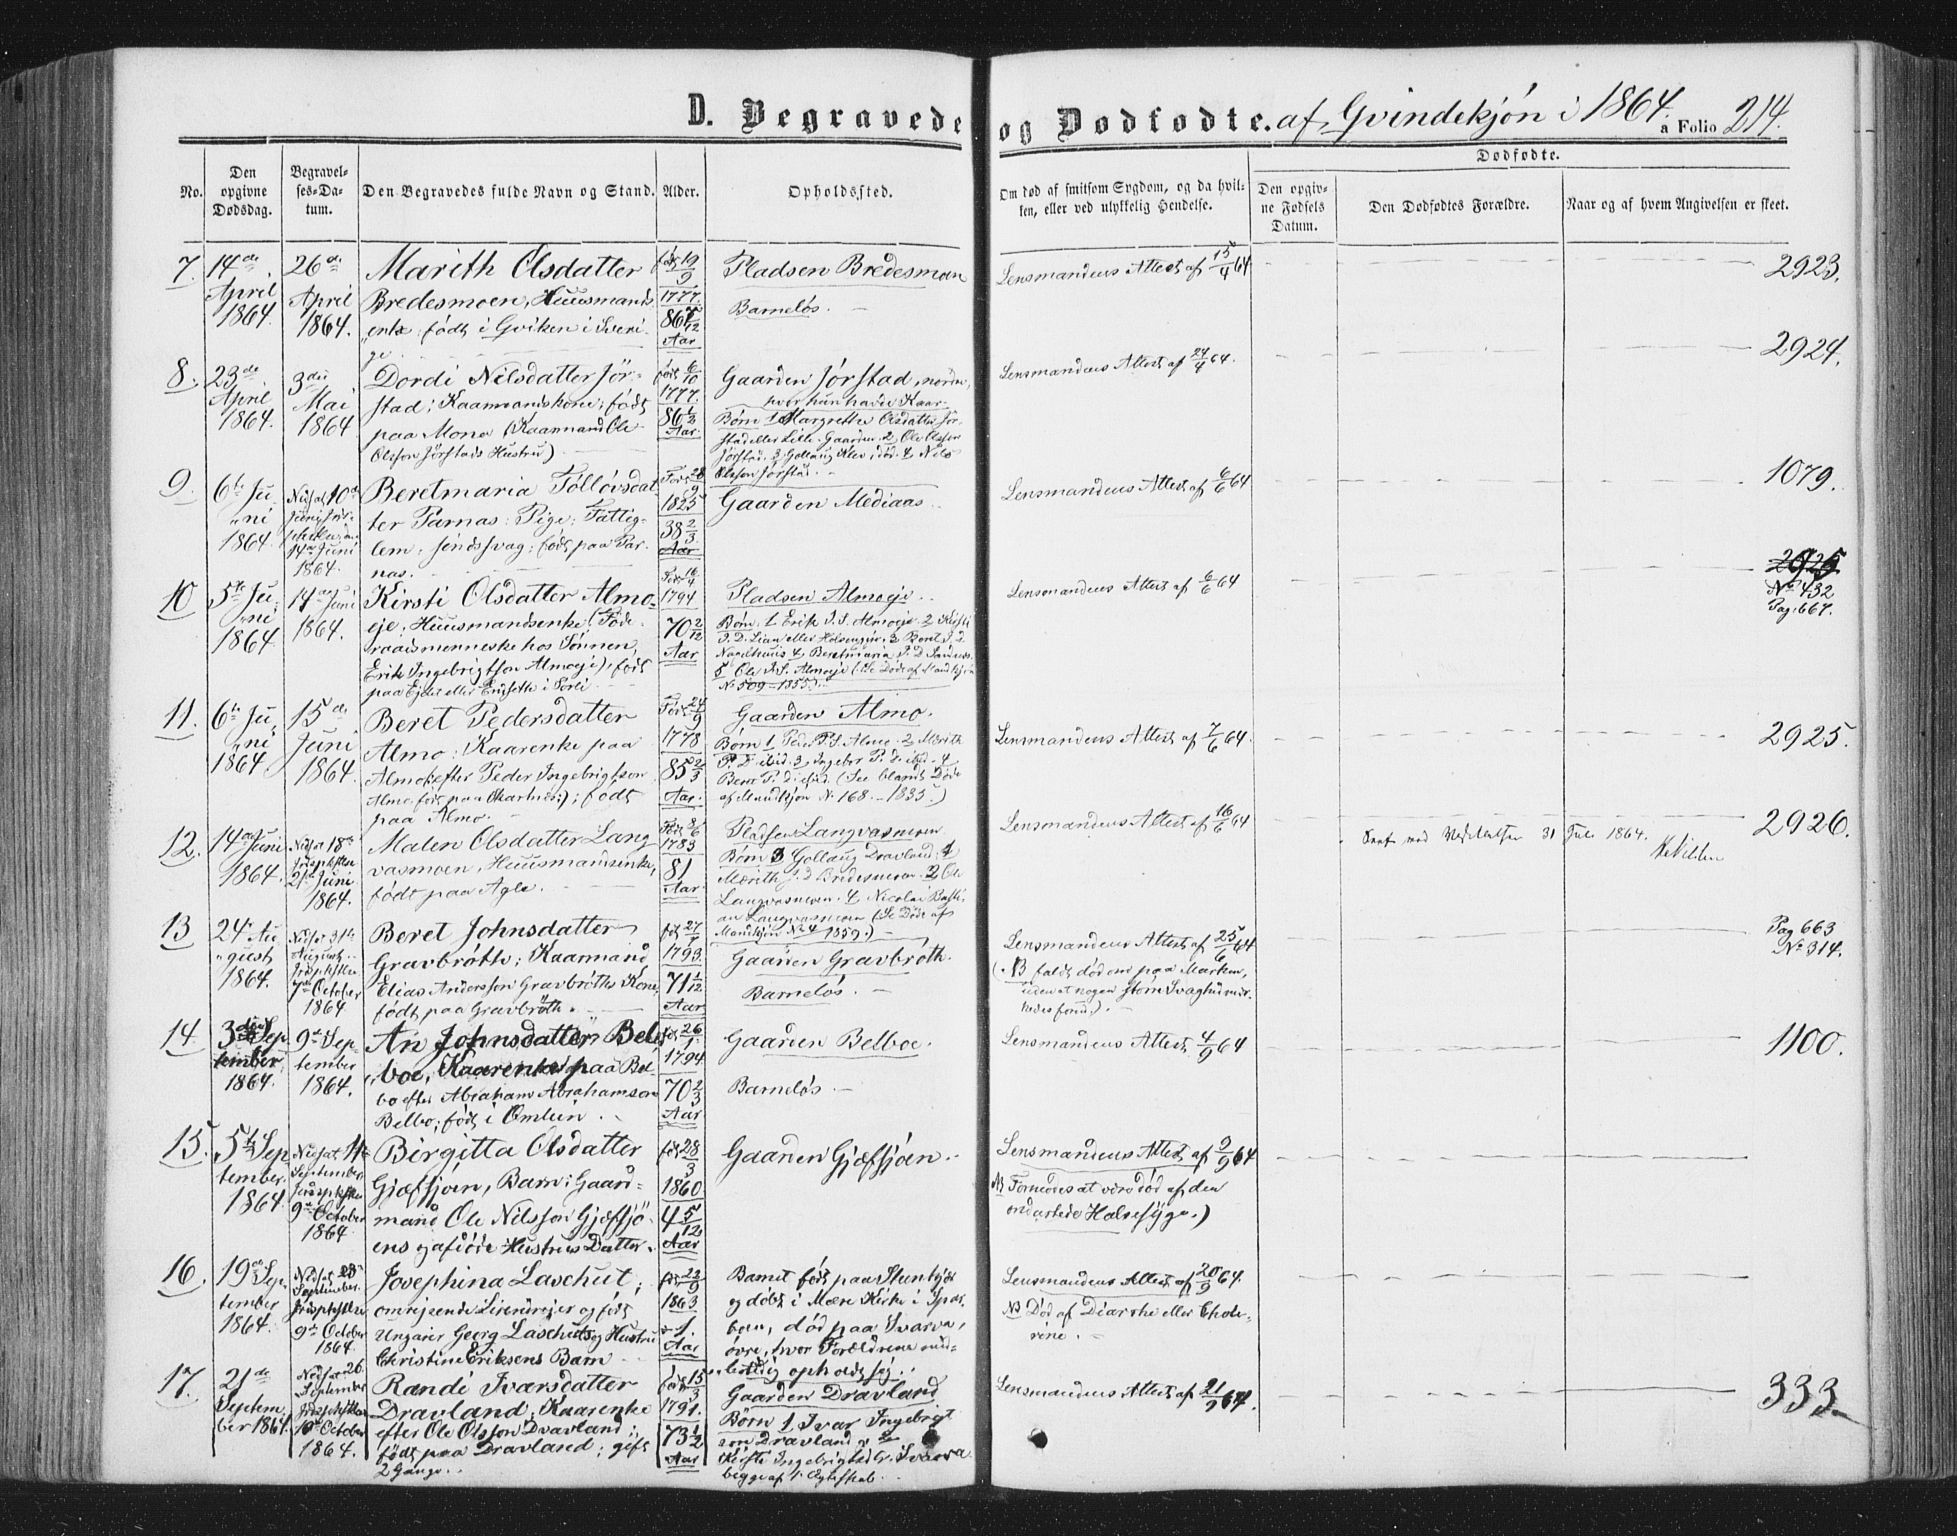 D. Begravede og Dødfødte. af Qvindekjön i 1864. a Folio 214.
Dødfødte.
No.
Den opgivne Dødsdag.
Begravelses-Datum.
Den Begravedes fulde Navn og Stand.
Alder.
Opholdssted.
Om død af smitsom Sygdom, og da hvilken, eller ved ulykkelig Hendelse.
Den opgivne Fødsels Datum.
Den Dødfødtes Forældre.
Naar og af hvem Angivelsen er skeet.
7.
14de
April
1864.
26de
April
1864.
Marith Olsdatter
Bredesmoen, Huusmands
enke: födt i Qviken i Sveri-
ge
födt 19/9
1777.
86 7/12
Aar
Pladsen Bredesmoen
Barnelös.
Lensmandens Attest af 15/4 64
2923.
8.
23de
April
1864.
3die
Mai
1864
Dordi Nilsdatter Jör-
stad; Kaarmandskone; födt
paa Mona (Kaarmand Ole
Olsson Jörstads Hustru)
födt 6/10
1777.
86 1/2
Aar.
Gaarden Jörstad, nordre,
hvor hun havde Kaar.
Börn 1 Margrethe Olsdatter Jör-
stad eller Lille-Gaarden 2, Ole Olsson
Jörstad. 3, Gollaug Klev, död. 4 Nils
Olsson Jörstad.
Lensmandens Attest af 24/4 64.
2924.
9.
6te Ju
"ni
1864.
Nedsat 10de
Juni
14de Juni
1864.
Beretmaria Tollövsdat
ter Parnas: Pige; Fattig-
lem, sindssvag; födt paa Par-
nas.
Födt 28/9
1825
38 2/3
Aar
Gaarden Mediaas
Lensmandens Attest af 6/6 64
1079.
10
5te Ju
"ni
1864
14de Juni
1864.
Kirsti Olsdatter Almo-
eje; Huusmandsenke (Föde-
raadsmenneske hos Sönnen,
Erik Ingebrigtson Almoeje), födt
paa Ejdet eller i Sörli
Födt 16/4
1794
70 2/12
Aar
Pladsen Almoeje.
Börn. 1 Erik I. S. Almoeje 2 Kirsti
I. D. Lian eller 3 Beret I. D.
4, Beretmaria I. D.
5 Ole I. S. Almoeje (Se Döde af Mandkjön
No 509-1855.)
Lensmandens Attest af 6/6 64
2925
No 432
Pag. 667.
11.
6te Ju
"ni
1864
15de
Juni
1864.
Beret Pedersdatter
Almo; Kaarenke paa
Almo (efter Peder Ingebrigtson
Almo, födt paa); födt
paa Almo.
Födt 24/9
1778
85 2/3
Aar.
Gaarden Almo.
Börn 1 Peder P. S. Almo. 2 Marith
P. D. ibid. 3, Ingebor P. D. ibid. 4
Beret P. D. ibid. (See blandt Döde
af Mandkjön No 168.-1835.)
Lensmandens Attest af 7/6 64.
2925.
12.
14de Juni
1864.
Nedsat 18de
Jordpaakastelse
21de Juni
1864.
Malen Olsdatter Lang
vasmoen, Huusmandsenke,
födt paa Agle.
Födt
1783
81
Aar
Pladsen Langvasmoen
Börn 3 Gollaug Dravland. 1
Marith J. D Bredesmoen. 2 Ole
Langvasmoen. 4 Nicolai Basti-
an Langvasmoen (Se Döde af
Mandkjön No 4 1859.)
Lensmandens Attest af 16/6 64
31 Juli 1864.
2926.
13
24de Au
"gust
1864.
Nedsat 31te
August.
Jordpaakastelse
7de October
1864
Beret Johnsdatter
Gravbröth; Kaarmand
Elias Andersson Gravbröths Kone,
födt paa Gravbröth.
födt 27/
1793.
71 1/12
Aar
Gaarden Gravbröth.
Barnelös.
Lensmandens Attest af 25/6 64
(NB faldt död om paa Marken,
uden at nogen större Svaghed mær-
kedes forud.)
Pag 663
No 314.
14.
3die Sep
tember
1864.
9de Sep-
tember
1864.
An Johnsdatter Bel-
boe, Kaarenke paa Bel-
bo efter Abraham Abrahamson
Belbo; födt i Omlien.
födt 26/1
1794
70 2/3
Aar
Gaarden Belboe.
Barnelös.
Lensmandens Attest 4/9 64
1100.
15.
5te Sep
tember
1864.
Nedsat 11te
September
Jordpaakastelse
9de October
1864
Birgitta Olsdatter
Gjæfsjöen, Barn: Gaard-
mand Ole Nilsson Gjæfsjö-
ens og afdöde Hustrues Datter.
födt 28/3
1860
4 5/12
Aar
Gaarden Gjæfsjöen.
Lensmandens Attest af 9/9 64
NB Formodes at være död af den
ondartede Halssyge.)
16.
19de Sep-
tember
1864.
Nedsat 25
September.
Jordpaakastelse
9de October
1864.
Josephina Laschut;
omrejsende Lirendrejer og födt
Ungarer Georg Laschuts og Hustru
Christine Eriksens Barn
födt 22/9
1863
1.
Aar
Barnet födt paa Steenkjær
og döbt i Mære Kirke i Spar-
boen, död paa Svarva,
övre, hvor Forældrene mid-
lertidig opholdt sig.
Lensmandens Attest af 20/9 64.
NB Död af Diarrhe eller Chole-
rine.
17.
21de
Septem
ber 1864.
Nedsat 26.
September
Jordpaakastelse
10de October
1864.
Randi Ivarsdatter
Dravland; Kaarenke
efter Ole Olsson Dravland;
födt paa Dravland; gift
2 Gange.
födt 15/3
1791.
73 1/2
Aar
Gaarden Dravland
Börn 1 Ivar Ingebrigt
son Dravland 2
Kirsti Ingebrigtsd. Svarva
begge af 1. Ægteskab.
Lensmandens Attest af 21/9 64.
333